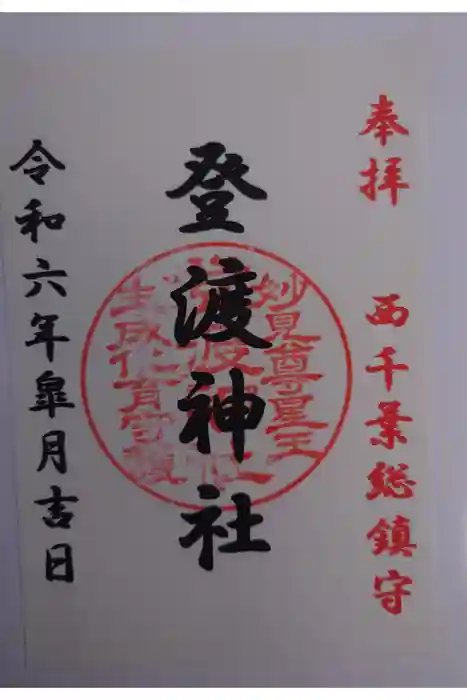 奉拝 西千葉総鎮守
登渡神社
妙見尊星王
令和六年皐月吉日